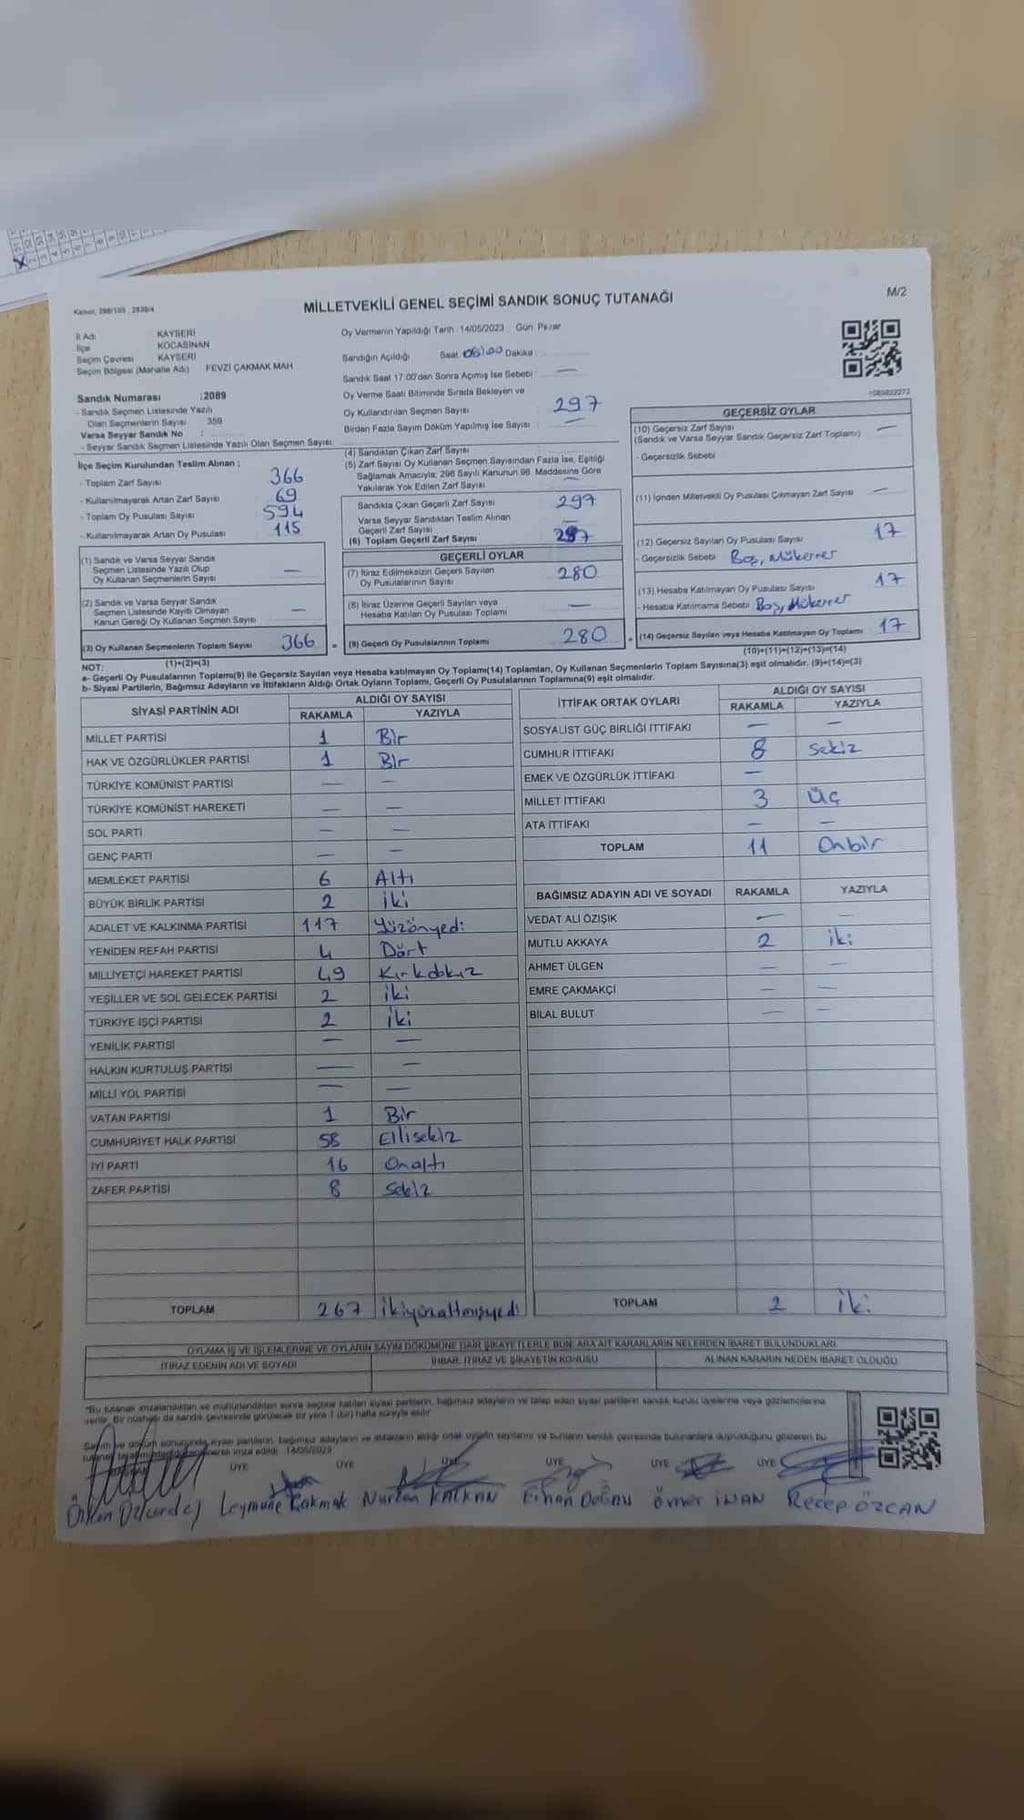 M/2
MİLLETVEKİLİ GENEL SEÇİMİ SANDIK SONUÇ TUTANAĞI
İl Adı : KAYSERİ
İlçe : KOCASİNAN
Seçim Çevresi : KAYSERİ
Seçim Bölgesi (Mahalle Adı) : FEVZİ ÇAKMAK MAH.
Oy Vermenin Yapıldığı Tarih : 14/05/2023 Gün: Pazar
Sandığın Açıldığı Saat: Dakika
Sandık Saat 17:00'dan Sonra Açılmış İse Sebebi : —
Oy Verme Saati Bitiminde Sırada Bekleyen ve
Oy Kullandırılan Seçmen Sayısı : 297
Birden Fazla Sayım Döküm Yapılmış İse Sayısı : —
Sandık Numarası : 2089
- Sandık Seçmen Listesinde Yazılı
Olan Seçmenlerin Sayısı : 359
Varsa Seyyar Sandık No :
- Seyyar Sandık Seçmen Listesinde Yazılı Olan Seçmen Sayısı :
İlçe Seçim Kurulundan Teslim Alınan ;
- Toplam Zarf Sayısı : 366
- Kullanılmayarak Artan Zarf Sayısı : 69
- Toplam Oy Pusulası Sayısı : 594
- Kullanılmayarak Artan Oy Pusulası : 115
(1) Sandık ve Varsa Seyyar Sandık
Seçmen Listesinde Yazılı Olup
Oy Kullanan Seçmenlerin Sayısı —
(2) Sandık ve Varsa Seyyar Sandık
Seçmen Listesinde Kayıtlı Olmayan
Kanun Gereği Oy Kullanan Seçmen Sayısı —
(3) Oy Kullanan Seçmenlerin Toplam Sayısı 366
(1)+(2)=(3)
(4) Sandıktan Çıkan Zarf Sayısı :
(5) Zarf Sayısı Oy Kullanan Seçmen Sayısından Fazla İse, Eşitliği
Sağlamak Amacıyla; 298 Sayılı Kanunun 98. Maddesine Göre
Yakılarak Yok Edilen Zarf Sayısı : —
Sandıkta Çıkan Geçerli Zarf Sayısı 297
Varsa Seyyar Sandıktan Teslim Alınan
Geçerli Zarf Sayısı —
(6) Toplam Geçerli Zarf Sayısı 297
GEÇERLİ OYLAR
(7) İtiraz Edilmeksizin Geçerli Sayılan
Oy Pusulalarının Sayısı 280
(8) İtiraz Üzerine Geçerli Sayılan veya
Hesaba Katılan Oy Pusulası Toplamı —
(9) Geçerli Oy Pusulalarının Toplamı 280
GEÇERSİZ OYLAR
(10) Geçersiz Zarf Sayısı
(Sandık ve Varsa Seyyar Sandık Geçersiz Zarf Toplamı) —
- Geçersizlik Sebebi
(11) İçinden Milletvekili Oy Pusulası Çıkmayan Zarf Sayısı —
(12) Geçersiz Sayılan Oy Pusulası Sayısı 17
- Geçersizlik Sebebi Boş, Mükerrer
(13) Hesaba Katılmayan Oy Pusulası Sayısı 17
- Hesaba Katılmama Sebebi Boş, Mükerrer
(14) Geçersiz Sayılan veya Hesaba Katılmayan Oy Toplamı 17
(10)+(11)+(12)+(13)=(14)
NOT:
a- Geçerli Oy Pusulalarının Toplamı(9) ile Geçersiz Sayılan veya Hesaba katılmayan Oy Toplamı(14) Toplamları, Oy Kullanan Seçmenlerin Toplam Sayısına(3) eşit olmalıdır. (9)+(14)=(3)
b- Siyasi Partilerin, Bağımsız Adayların ve İttifakların Aldığı Ortak Oyların Toplamı, Geçerli Oy Pusulalarının Toplamına(9) eşit olmalıdır.
SİYASİ PARTİNİN ADI ALDIĞI OY SAYISI
RAKAMLA YAZIYLA
MİLLET PARTİSİ 1 Bir
HAK VE ÖZGÜRLÜKLER PARTİSİ 1 Bir
TÜRKİYE KOMÜNİST PARTİSİ — —
TÜRKİYE KOMÜNİST HAREKETİ — —
SOL PARTİ — —
GENÇ PARTİ — —
MEMLEKET PARTİSİ 6 Altı
BÜYÜK BİRLİK PARTİSİ 2 iki
ADALET VE KALKINMA PARTİSİ 117 Yüzonyedi
YENİDEN REFAH PARTİSİ 4 Dört
MİLLİYETÇİ HAREKET PARTİSİ 49 Kırkdokuz
YEŞİLLER VE SOL GELECEK PARTİSİ 2 iki
TÜRKİYE İŞÇİ PARTİSİ 2 iki
YENİLİK PARTİSİ — —
HALKIN KURTULUŞ PARTİSİ — —
MİLLİ YOL PARTİSİ — —
VATAN PARTİSİ 1 Bir
CUMHURİYET HALK PARTİSİ 58 Ellisekiz
İYİ PARTİ 16 Onaltı
ZAFER PARTİSİ 8 Sekiz
TOPLAM 267 ikiyüzaltmışyedi
İTTİFAK ORTAK OYLARI ALDIĞI OY SAYISI
RAKAMLA YAZIYLA
SOSYALİST GÜÇ BİRLİĞİ İTTİFAKI — —
CUMHUR İTTİFAKI 8 Sekiz
EMEK VE ÖZGÜRLÜK İTTİFAKI —
MİLLET İTTİFAKI 3 Üç
ATA İTTİFAKI — —
TOPLAM 11 Onbir
BAĞIMSIZ ADAYIN ADI VE SOYADI RAKAMLA YAZIYLA
VEDAT ALİ ÖZIŞIK — —
MUTLU AKKAYA 2 iki
AHMET ÜLGEN — —
EMRE ÇAKMAKÇİ — —
BİLAL BULUT — —
TOPLAM 2 iki
OYLAMA İŞ VE İŞLEMLERİNE VE OYLARIN SAYIM DÖKÜMÜNE DAİR ŞİKAYETLERLE BUNLARA AİT KARARLARIN NELERDEN İBARET BULUNDUKLARI
İTİRAZ EDENİN ADI VE SOYADI İHBAR, İTİRAZ VE ŞİKAYETİN KONUSU ALINAN KARARIN NEDEN İBARET OLDUĞU
ÜYE ÜYE ÜYE ÜYE ÜYE ÜYE
Leymune Çakmak Nurkan KALKAN Erhan Doğru Ömer İNAN Recep ÖZCAN